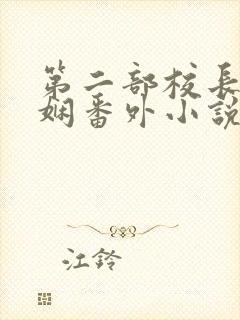 第二部校長
娴番外小說
江鈴